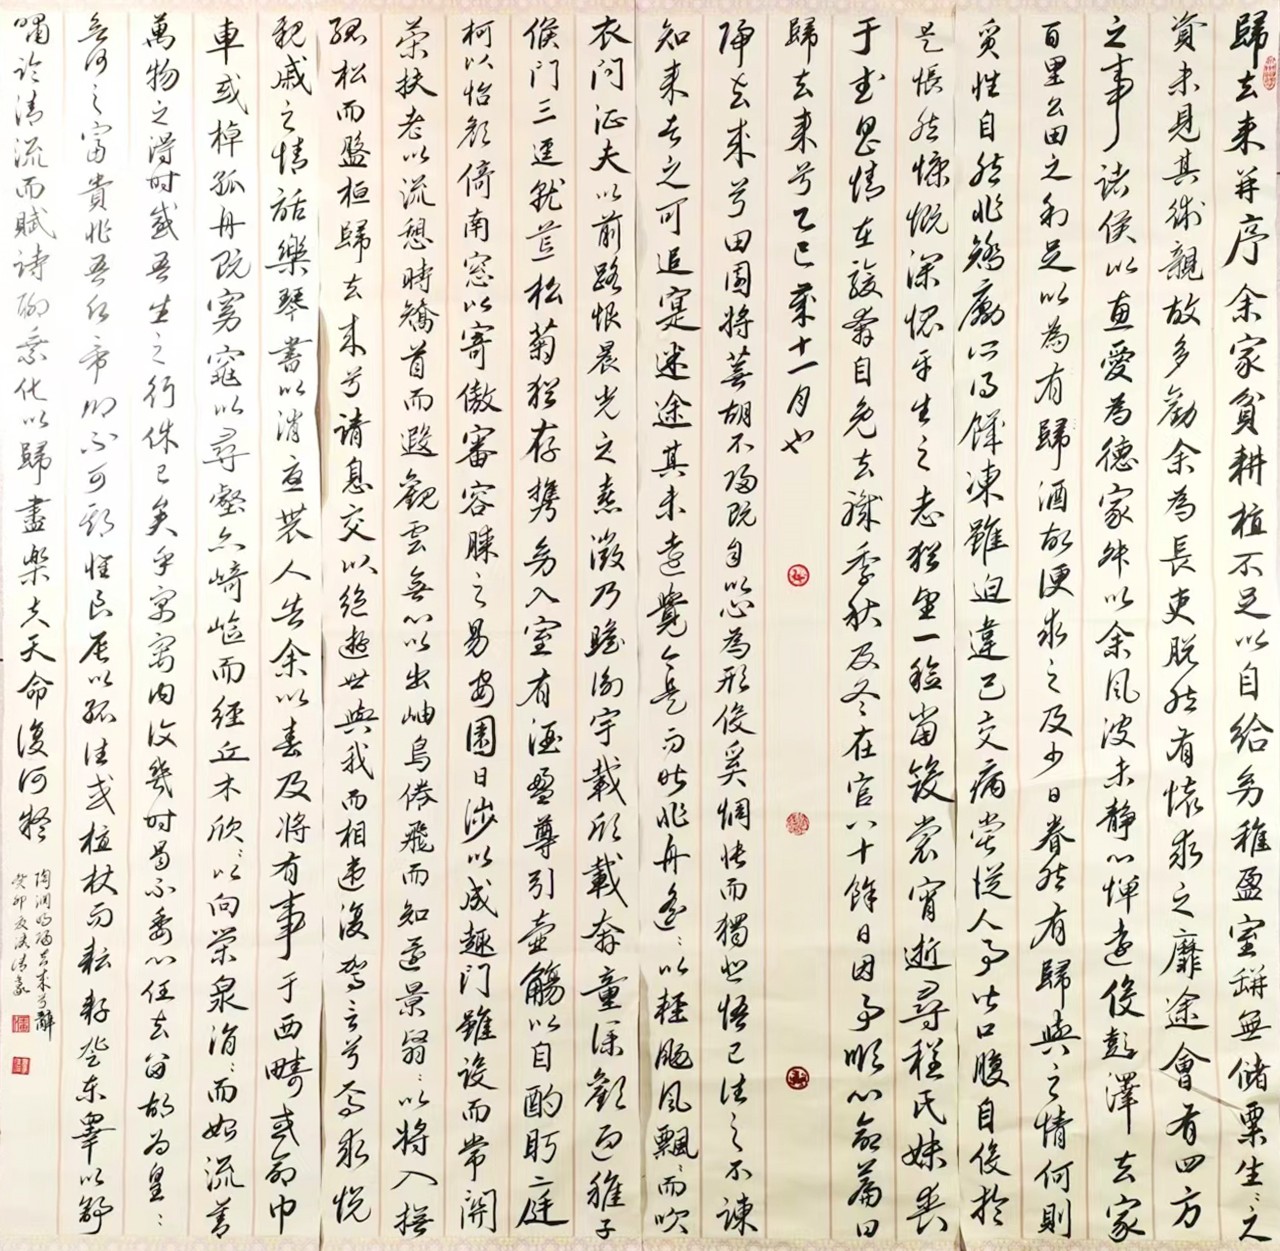 歸去来并序余家貧耕植不足以自給幼稚盈室缾無儲粟生〻之
資未見其術親故多勸余為長吏脱然有懷求之靡途會有四方
之事諸侯以惠愛為德家叔以余風波未静心憚遠役彭澤去家
百里公田之利足以為有歸酒故便求之及少日眷然有歸與之情何則
質性自然非矯厲所得饑凍雖迫違己交病嘗從人事皆口腹自役於
是悵然慷慨深愧平生之志猶望一稔當斂裳宵逝尋程氏妹喪
于武昌情在駿奔自免去職季秋及冬在官八十餘日因事順心命篇曰
歸去来兮乙巳歲十一月也
歸去来兮田園将蕪胡不歸既自以心為形役奚惆悵而獨悲悟已往之不諫
知来者之可追寔迷途其未遠覺今是而昨非舟遥〻以輕颺風飄〻而吹
衣問征夫以前路恨晨光之熹微乃瞻衡宇載欣載奔童僕歡迎稚子
候門三逕就荒松菊猶存携幼入室有酒盈尊引壺觴以自酌眄庭
柯以怡顔倚南窓以寄傲審容膝之易安園日涉以成趣門雖設而常開
策扶老以流憩時矯首而遐觀雲無心以出岫鳥倦飛而知還景翳〻以将入撫
孤松而盤桓歸去来兮請息交以絶遊世與我而相遺復駕言兮焉求悦
親戚之情話樂琴書以消憂農人告余以春及将有事于西疇或命巾
車或棹孤舟既窈窕以尋壑亦崎嶇而經丘木欣〻以向榮泉涓〻而始流善
萬物之得時感吾生之行休已矣乎寓内復幾時曷不委心任去留胡為皇〻
之富貴非吾願帝鄉不可期懷良辰以孤往或植杖而耘耔登東皋以舒
嘯臨清流而賦詩聊乘化以歸盡樂夫天命復何疑
陶淵明歸去来兮辭
癸卯